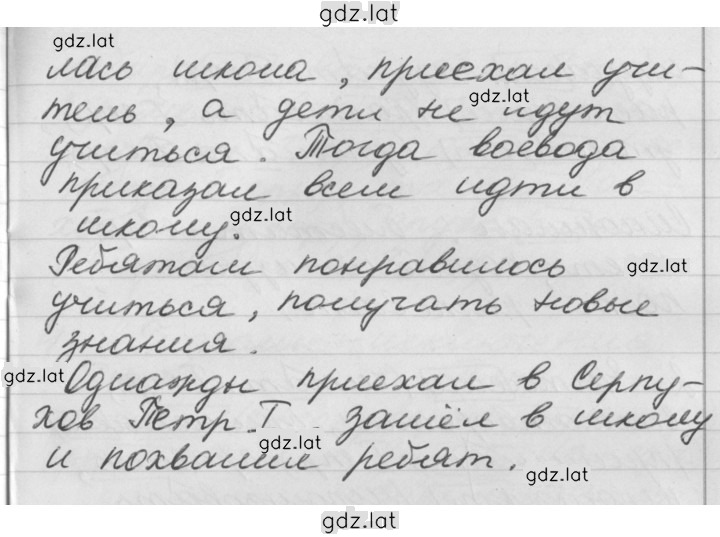 gdz.lat
gdz.lat
лась школа, приехал учи-
gdz.lat
тель, а дети не идут
учиться. Тогда воевода
приказал всем идти в
gdz.lat
школу.
Ребятам понравилось
gdz.lat
учиться, получать новые
знания.
gdz.lat
Однажды приехал в Серпу-
хов Петр I зашёл в школу
gdz.lat
и похвалил ребят.
gdz.lat
gdz.lat